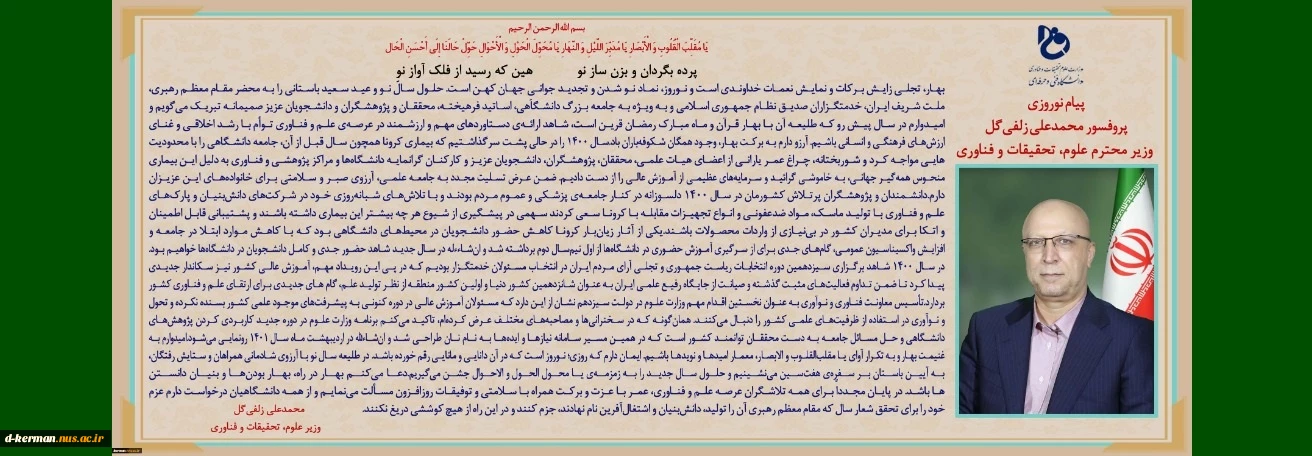 بسم الله الرحمن الرحیم
یَا مُقَلِّبَ الْقُلُوبِ وَالْأَبْصَارِ یَا مُدَبِّرَ اللَّیْلِ وَالنَّهَارِ یَا مُحَوِّلَ الْحَوْلِ وَالْأَحْوَالِ حَوِّلْ حَالَنَا إِلَی أَحْسَنِ الْحَالِ
پرده بگردان و بزن ساز نو هین که رسید از فلک آواز نو
وزارت علوم تحقیقات و فناوری
دانشگاه فنی و حرفه‌ای
پیام نوروزی
پروفسور محمدعلی زلفی گل
وزیر محترم علوم، تحقیقات و فناوری
بهار، تجلی زایش برکات و نمایش نعمات خداوندی است و نوروز، نماد نو شدن و تجدید جوانی جهان کهن است. حلول سال نو و عید سعید باستانی را به محضر مقام معظم رهبری،
ملت شریف ایران، خدمتگزاران صدیق نظام جمهوری اسلامی و به ویژه به جامعه بزرگ دانشگاهی، اساتید فرهیخته، محققان و پژوهشگران و دانشجویان عزیز صمیمانه تبریک می‌گویم و
امیدوارم در سال پیش رو که طلیعه آن با بهار قرآن و ماه مبارک رمضان قرین است، شاهد ارائه‌ی دستاوردهای مهم و ارزشمند در عرصه‌ی علم و فناوری توأم با رشد اخلاقی و غنای
ارزش‌های فرهنگی و انسانی باشیم. آرزو دارم به برکت بهار، وجود همگان شکوفه‌باران باد.سال ۱۴۰۰ را در حالی پشت سر گذاشتیم که بیماری کرونا همچون سال قبل از آن، جامعه دانشگاهی را با محدودیت
هایی مواجه کرد و شوربختانه، چراغ عمر یارانی از اعضای هیات علمی، محققان، پژوهشگران، دانشجویان عزیز و کارکنان گرانمایه دانشگاه‌ها و مراکز پژوهشی و فناوری به دلیل این بیماری
منحوس همه‌گیر جهانی، به خاموشی گرائید و سرمایه‌های عظیمی از آموزش عالی را از دست دادیم. ضمن عرض تسلیت مجدد به جامعه علمی، آرزوی صبر و سلامتی برای خانواده‌های این عزیزان
دارم.دانشمندان و پژوهشگران پرتلاش کشورمان در سال ۱۴۰۰ دلسوزانه در کنار جامعه‌ی پزشکی و عموم مردم بودند و با تلاش‌های شبانه‌روزی خود در شرکت‌های دانش‌بنیان و پارک‌های
علم و فناوری با تولید ماسک، مواد ضدعفونی و انواع تجهیزات مقابله با کرونا سعی کردند سهمی در پیشگیری از شیوع هر چه بیشتر این بیماری داشته باشند و پشتیبانی قابل اطمینان
و اتکا برای مدیران کشور در بی‌نیازی از واردات محصولات باشند.یکی از آثار زیان‌بار کرونا کاهش حضور دانشجویان در محیط‌های دانشگاهی بود که با کاهش موارد ابتلا در جامعه و
افزایش واکسیناسیون عمومی، گام‌های جدی برای از سرگیری آموزش حضوری در دانشگاه‌ها از اول نیم‌سال دوم برداشته شد و ان‌شاءاله در سال جدید شاهد حضور جدی و کامل دانشجویان در دانشگاه‌ها خواهیم بود.
در سال ۱۴۰۰ شاهد برگزاری سیزدهمین دوره انتخابات ریاست جمهوری و تجلی آرای مردم ایران در انتخاب مسئولان خدمتگزار بودیم که در پی این رویداد مهم، آموزش عالی کشور نیز سکاندار جدیدی
پیدا کرد تا ضمن تداوم فعالیت‌های مثبت گذشته و صیانت از جایگاه رفیع علمی ایران به عنوان شانزدهمین کشور دنیا و اولین کشور منطقه از نظر تولید علم، گام های جدیدی برای ارتقای علم و فناوری کشور
بردارد.تأسیس معاونت فناوری و نوآوری به عنوان نخستین اقدام مهم وزارت علوم در دولت سیزدهم نشان از این دارد که مسئولان آموزش عالی در دوره کنونی به پیشرفت‌های موجود علمی کشور بسنده نکرده و تحول
و نوآوری در استفاده از ظرفیت‌های علمی کشور را دنبال می‌کنند. همان‌گونه که در سخنرانی‌ها و مصاحبه‌های مختلف عرض کرده‌ام، تاکید می‌کنم برنامه وزارت علوم در دوره جدید کاربردی کردن پژوهش‌های
دانشگاهی و حل مسائل جامعه به دست محققان توانمند کشور است که در همین مسیر سامانه نیازها و ایده‌ها به نام نان طراحی شد و ان‌شاءالله در اردیبهشت ماه سال ۱۴۰۱ رونمایی می‌شود.امیدوارم به
غنیمت بهار و به تکرار آوای یا مقلب‌القلوب و الابصار، معمار امیدها و نویدها باشیم. ایمان دارم که روزی؛ نوروز است که در آن دانایی و مانایی رقم خورده باشد. در طلیعه سال نو با آرزوی شادمانی همراهان و ستایش رفتگان،
به آیین باستان بر سفره‌ی هفت‌سین می‌نشینیم و حلول سال جدید را به زمزمه‌ی یا محول الحول و الاحوال جشن می‌گیریم.دعا می‌کنم بهار در راه، بهار بودن‌ها و بنیان دانستن
ها باشد. در پایان مجدداً برای همه تلاشگران عرصه علم و فناوری، عمر با عزت و برکت همراه با سلامتی و توفیقات روزافزون مسألت می‌نمایم و از همه دانشگاهیان درخواست دارم عزم
خود را برای تحقق شعار سال که مقام معظم رهبری آن را تولید، دانش‌بنیان و اشتغال‌آفرین نام نهادند، جزم کنند و در این راه از هیچ کوششی دریغ نکنند.
محمدعلی زلفی گل
وزیر علوم، تحقیقات و فناوری
d-kerman.nus.ac.ir